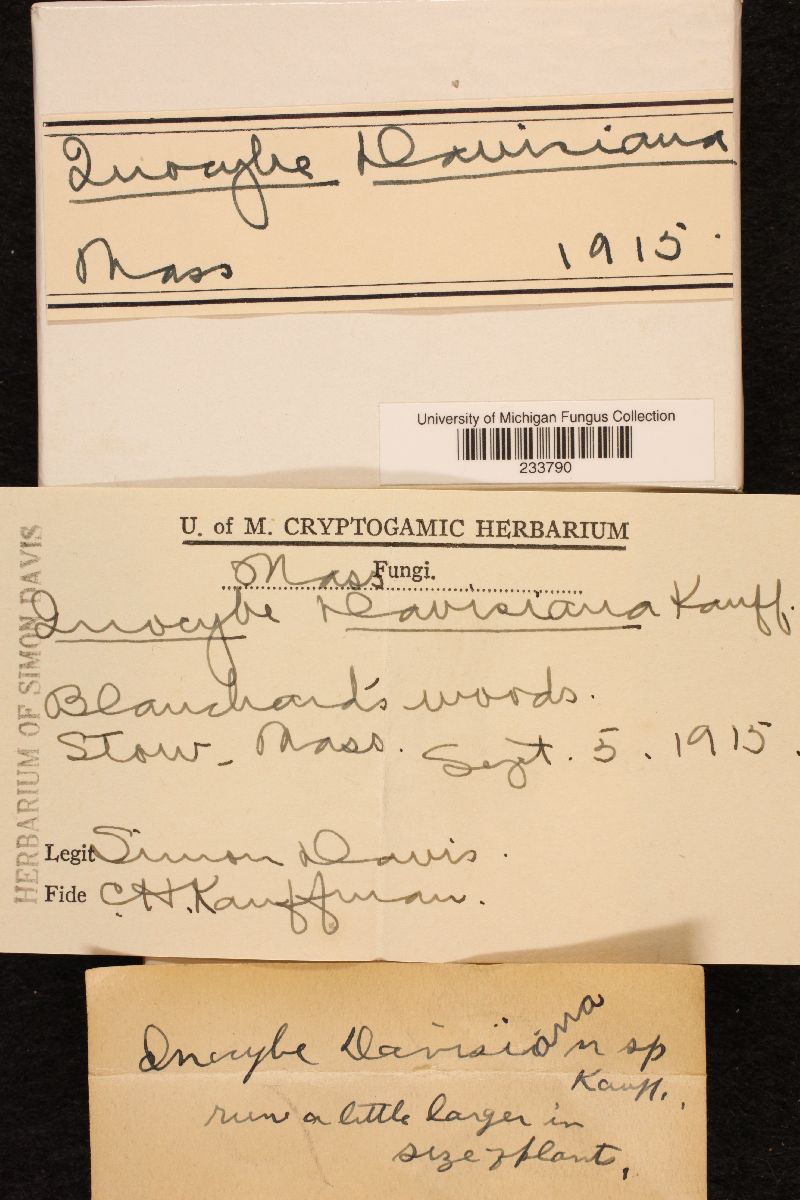 Inocybe Davisiana
Mass 1915.
University of Michigan Fungus Collection
233790
U. of M. CRYPTOGAMIC HERBARIUM
Mass Fungi.
Inocybe Davisiana Kauff.
Blanchard's woods.
Stow - Mass. Sept. 5. 1915.
Legit Simon Davis.
Fide C.H. Kauffman.
HERBARIUM OF SIMON DAVIS
Inocybe Davisiana n sp
Kauff.
run a little larger in
size of plants.